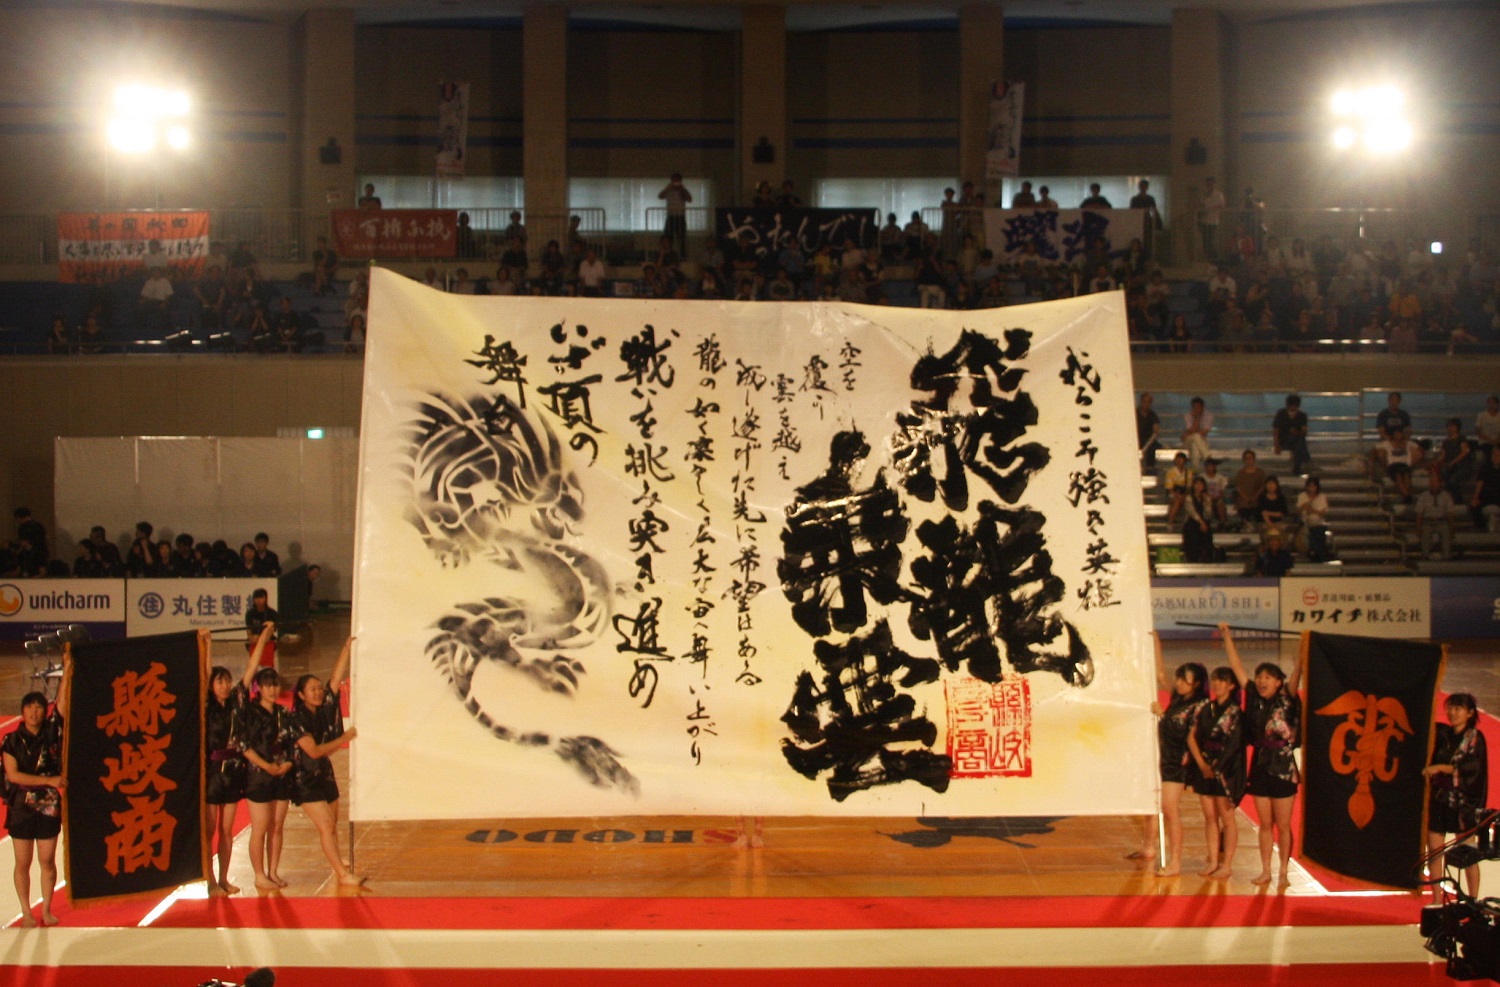 我らこそ強き英雄
飛龍
乗雲
縣岐
商
空を
覆う
雲を越え
成し遂げた先に希望はある
龍の如く凛々しく広大な宙へ舞い上がり
戦いを挑み突き進め
いざ頂の
舞台へ
縣岐商
unicharm
丸住製紙
Marusumi Paper
MARUISHI
カワイチ 株式会社
SHODO
やったんでい